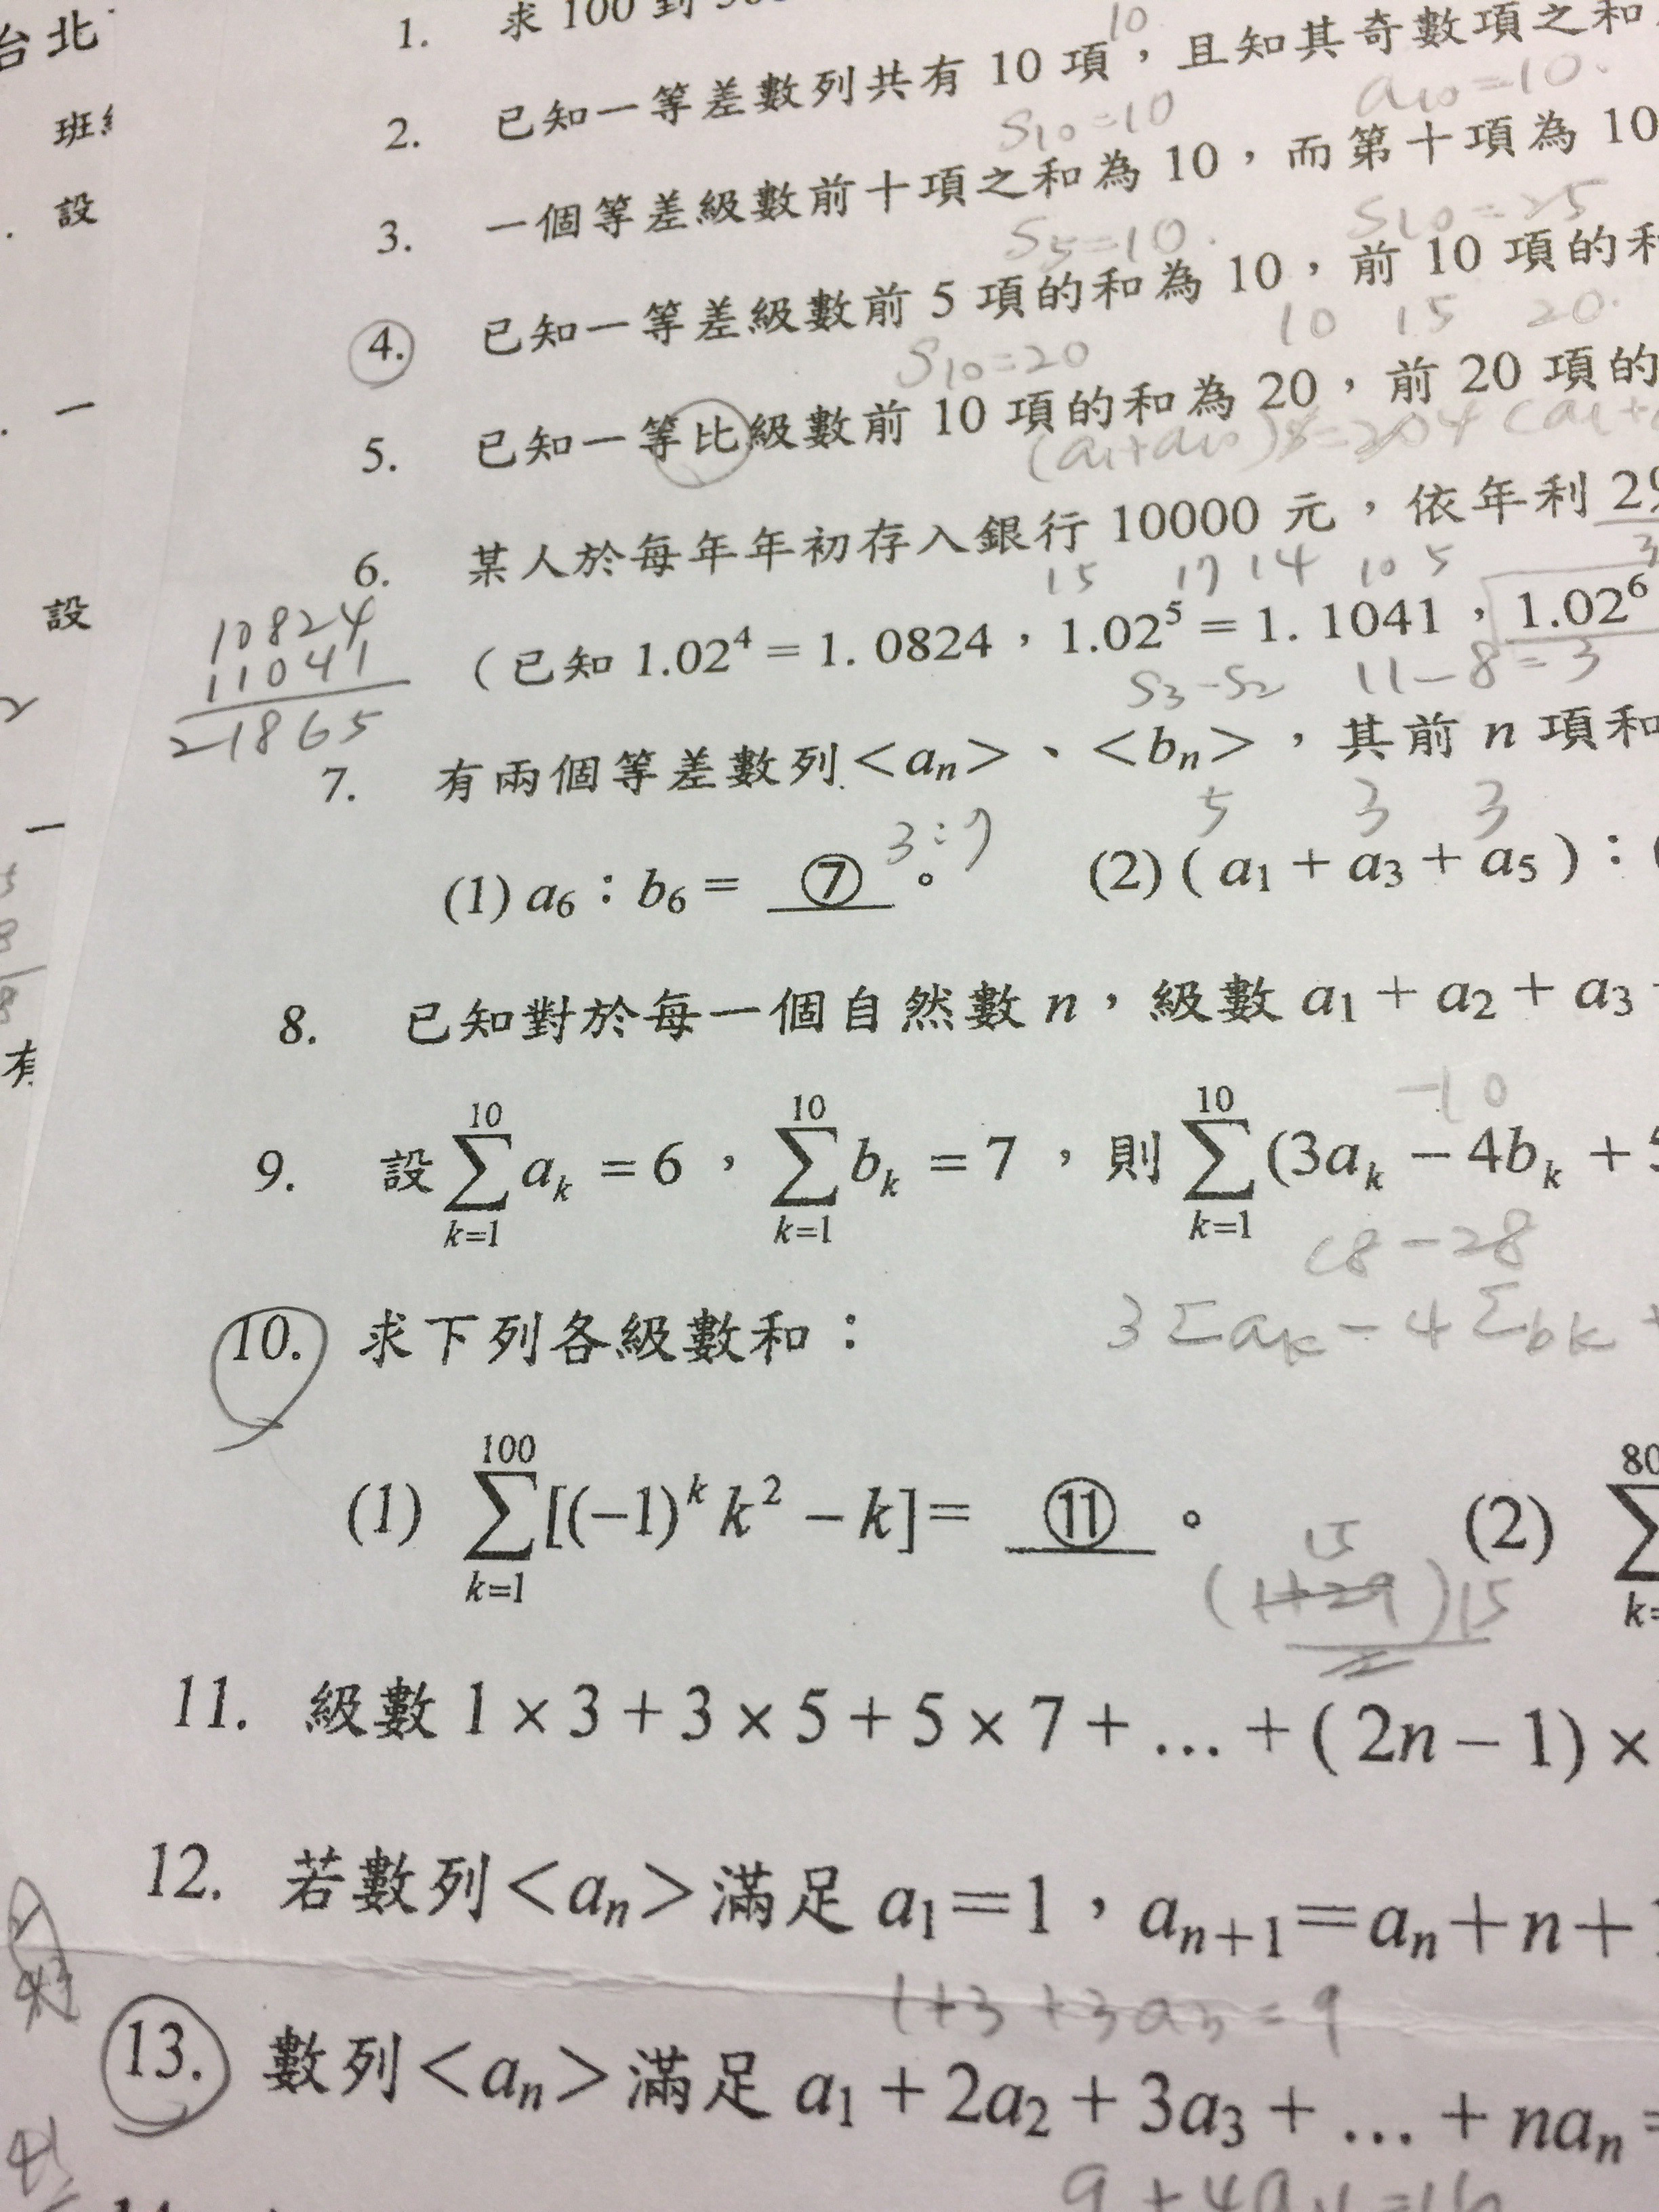 台北
班
設
一
設
2
一
有
1. 求 100 到
10
2. 已知一等差數列共有 10 項，且知其奇數項之和
S10=10 a10=10.
3. 一個等差級數前十項之和為 10，而第十項為 10
S5=10. S10=25
4. 已知一等差級數前 5 項的和為 10，前 10 項的和
S10=20 10 15 20.
5. 已知一等比級數前 10 項的和為 20，前 20 項的
(a1+a10)
6. 某人於每年年初存入銀行 10000 元，依年利 2%
15 17 14 10 5 3
（已知 1.02⁴ = 1. 0824，1.02⁵ = 1. 1041，1.02⁶
10824
11041
21865
S3-S2 11-8=3
7. 有兩個等差數列<aₙ>、<bₙ>，其前 n 項和
3:7 5 3 3
(1) a₆：b₆ = ⑦。 (2) ( a₁ + a₃ + a₅ )：(
8. 已知對於每一個自然數 n，級數 a₁ + a₂ + a₃
-10
9. 設 ∑_{k=1}^{10} aₖ = 6，∑_{k=1}^{10} bₖ = 7，則 ∑_{k=1}^{10} (3aₖ − 4bₖ + 5
18-28
3Σak-4Σbk+
10. 求下列各級數和：
(1) ∑_{k=1}^{100} [(−1)ᵏ k² − k] = ⑪。 (2) ∑_{k=}^{80}
15
(1+29)15
2
11. 級數 1 × 3 + 3 × 5 + 5 × 7 + … + ( 2n − 1) ×
12. 若數列<aₙ>滿足 a₁＝1，aₙ₊₁＝aₙ＋n＋1
1+3+3a3=9
13. 數列<aₙ>滿足 a₁ + 2a₂ + 3a₃ + … + naₙ =
9+4a4=16